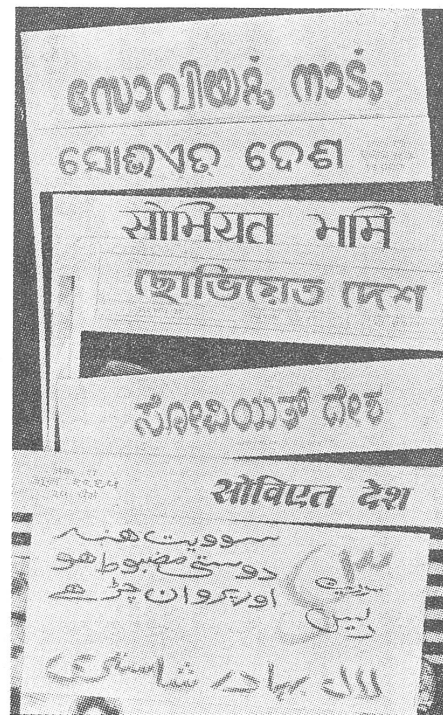 സോവിയറ്റ് നാട്
ସୋଭିଏତ ଦେଶ
सोभियत भूमि
ছোভিয়েত দেশ
ಸೋವಿಯತ್ ದೇಶ
सोविएत देश
سوویت ہند
دوستی مضبوط ہو
اور پروان چڑھے
سوویت
دیس
لال بہادر شاستری